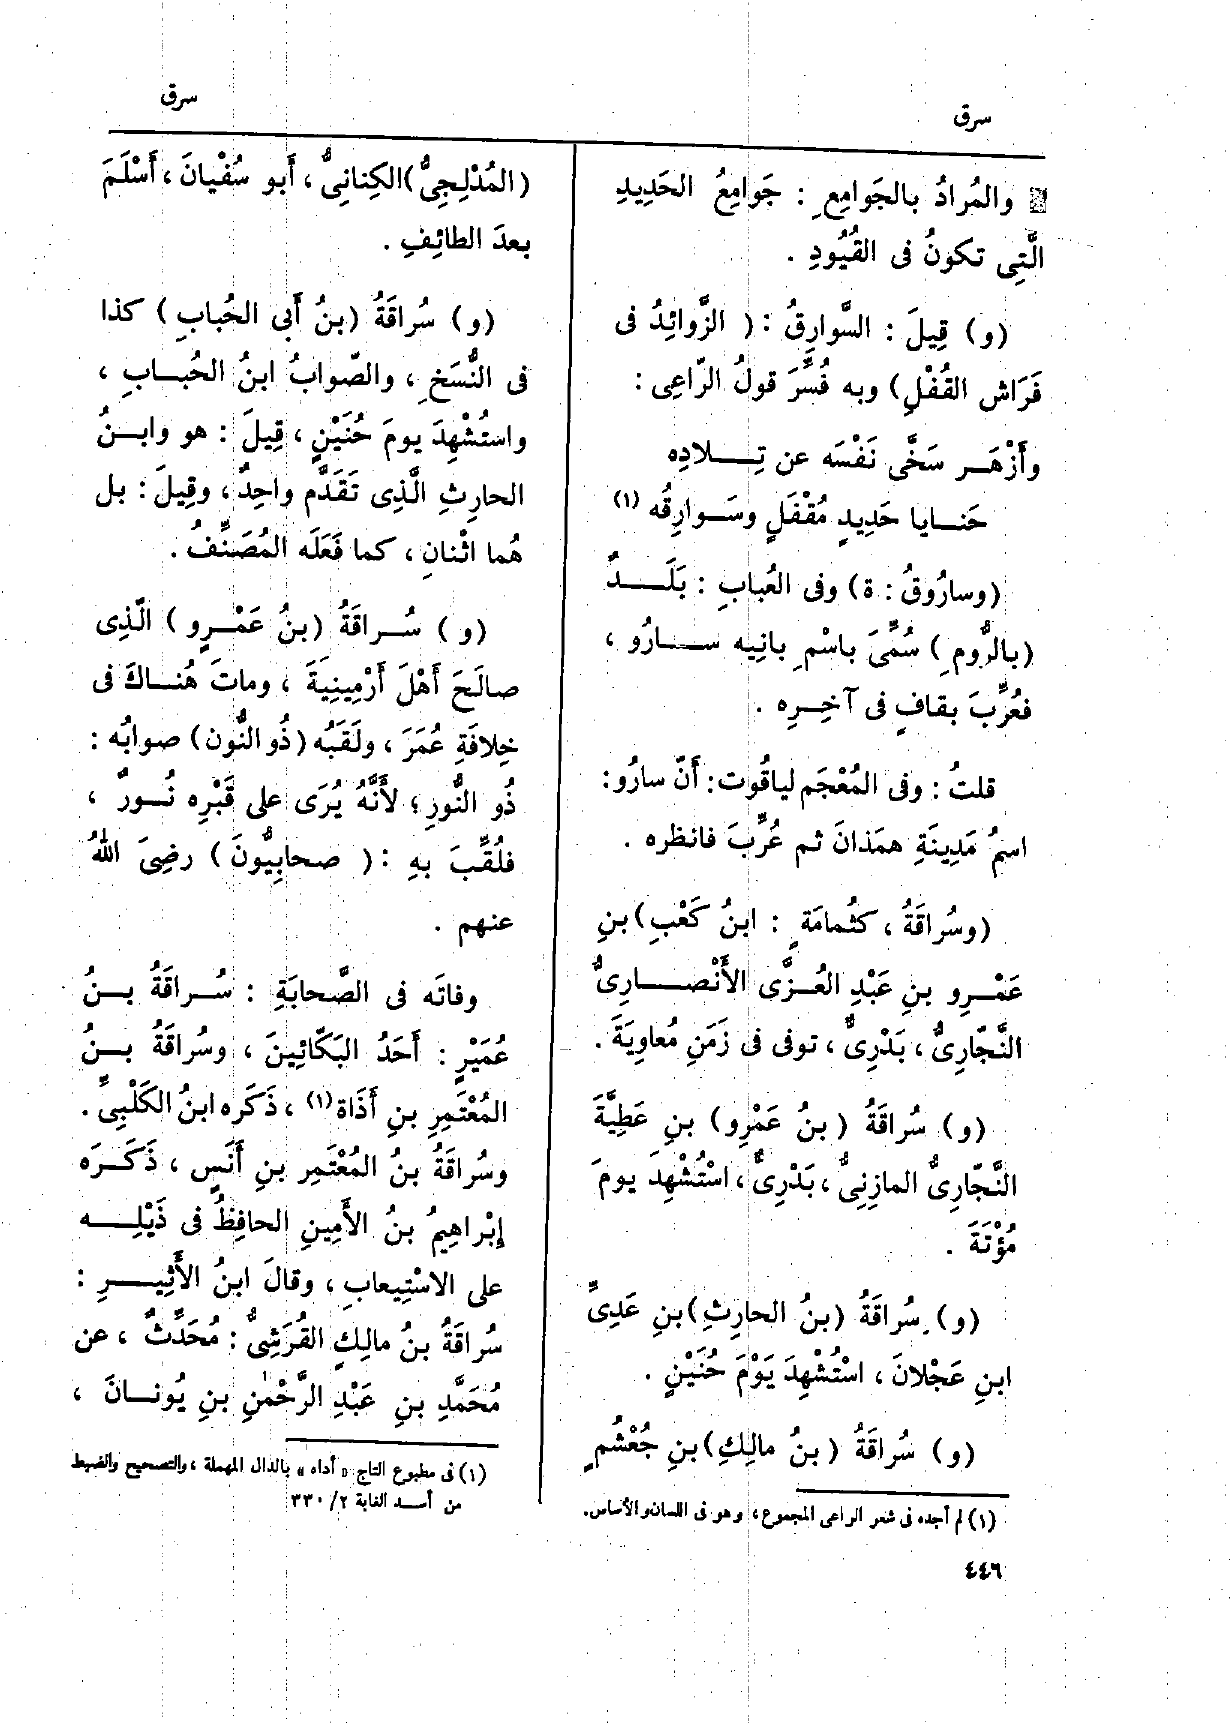 سرق
سرق
والمُرادُ بالجَوامِعِ : جَوامِعُ الحَدِيدِ
الَّتِى تكونُ فى القُيُودِ .
(و) قِيلَ : السَّوارِقُ : ( الزَّوائِدُ فى
فَرَاش القُفْلِ) وبه فُسِّرَ قولُ الرّاعِى :
وأَزْهَـر سَخَّى نَفْسَه عن تِـــلادِه
حَنـايا حَدِيدٍ مُقْفَلٍ وسَـوارِقُه (١)
(وسارُوقُ : ة) وفى العُبابِ : بَلَــدٌ
(بالرُّومِ) سُمِّىَ باسْمِ بانِيه ســارُو ،
فعُرِّبَ بقافٍ فى آخِـرِه .
قلتُ : وفى المُعْجَم لياقُوت : أَنّ سارُو :
اسمُ مَدِينَةِ همَذانَ ثم عُرِّبَ فانظره .
(وسُراقَةُ ، كثُمامَةٍ : ابنُ كَعْبِ) بنِ
عَمْـرِو بنِ عَبْدِ العُـزَّى الأَنْصــارِىُّ
النَّجّارِىُّ ، بَدْرِىٌّ ، توفى فى زَمَنِ مُعاوِيَةَ .
(و) سُراقَةُ (بنُ عَمْرِو) بنِ عَطِيَّةَ
النَّجّارِىُّ المازِنِىُّ ، بَدْرِىٌّ ، اسْتُشْهِدَ يومَ
مُؤْتَةَ .
(و) سُراقَةُ (بنُ الحارِثِ) بنِ عَدِىِّ
ابنِ عَجْلانَ ، اسْتُشْهِدَ يَوْمَ حُنَيْنٍ .
(و) سُراقَةُ (بنُ مالِكِ) بنِ جُعْشُمٍ
(١) لم أجده فى شعر الراعى المجموع ، وهو فى اللسان والأساس.
٤٤٦
(المُدْلِجِىُّ) الكِنانِىُّ ، أَبو سُفْيانَ ، أَسْلَمَ
بعدَ الطائِفِ .
(و) سُراقَةُ (بنُ أَبِى الحُبابِ) كذا
فى النُّسَخِ ، والصّوابُ ابنُ الحُبـابِ ،
واستُشْهِدَ يومَ حُنَيْنٍ ، قِيلَ : هو وابـنُ
الحارِثِ الَّذِى تَقَدَّم واحِدٌ ، وقِيلَ : بل
هُما اثْنانِ ، كما فَعَلَه المُصَنِّفُ .
(و) سُـراقَةُ (بنُ عَمْـرٍو) الَّذِى
صالَحَ أَهْلَ أَرْمِينِيَةَ ، وماتَ هُنـاكَ فى
خِلافَةِ عُمَرَ ، ولَقَبُه (ذُو النُّون) صوابُه :
ذُو النُّورِ ؛ لأَنَّهُ يُرَى على قَبْرِه نُـورٌ ،
فلُقِّبَ بهِ : ( صحابِيُّونَ ) رضِىَ اللهُ
عنهم .
وفاتَه فى الصَّحابَةِ : سُـراقَةُ بـنُ
عُمَيْرٍ : أَحَدُ البَكّائِينَ ، وسُراقَةُ بـنُ
المُعْتَمِرِ بنِ أَذَاة (١) ، ذَكَره ابنُ الكَلْبِىِّ .
وسُراقَةُ بنُ المُعْتَمِر بنِ أَنَسٍ ، ذَكَـرَه
إِبْراهِيمُ بنُ الأَمِينِ الحافِظُ فى ذَيْلِــه
على الاسْتِيعابِ ، وقالَ ابنُ الأَثِيـرِ :
سُراقَةُ بنُ مالِكٍ القُرَشِىُّ : مُحَدِّثٌ ، عن
مُحَمَّدِ بنِ عَبْدِ الرَّحْمٰنِ بنِ يُونـانَ ،
(١) فى مطبوع التاج «أداه» بالدال المهملة ، والتصحيح والضبط
من أسـد الغابة ٢ / ٣٣٠